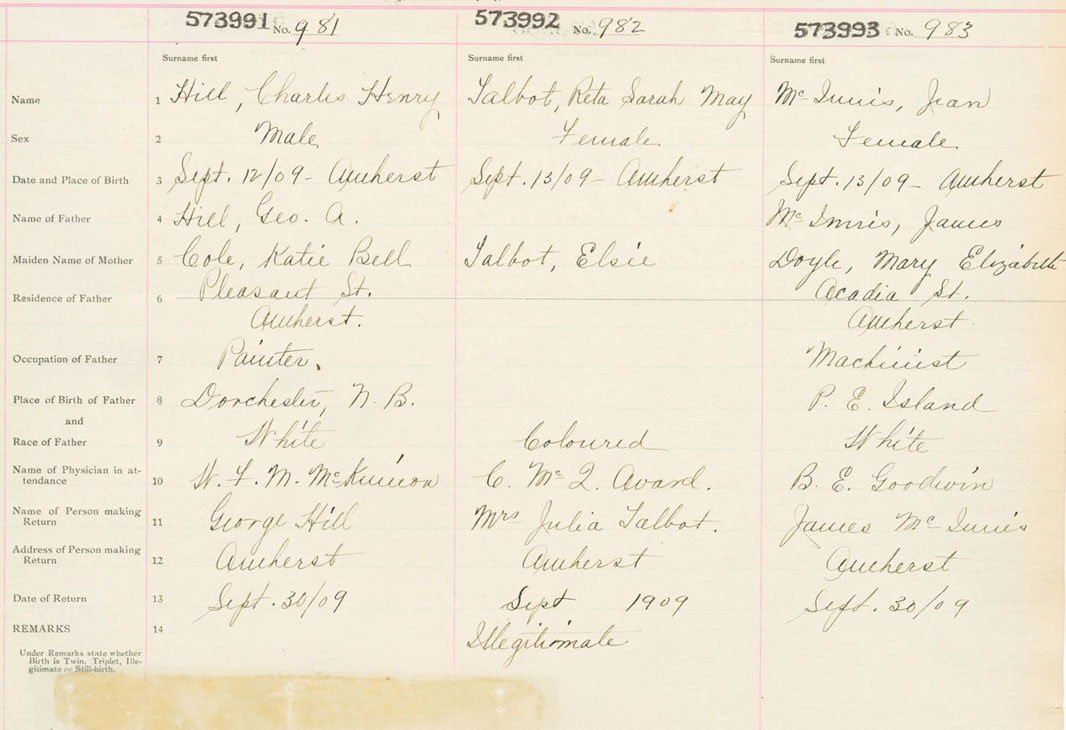 573991 No. 981
573992 No. 982
573993 No. 983
Surname first
Surname first
Surname first
Name 1 Hill, Charles Henry
Talbot, Reta Sarah May
Mc Innis, Jean
Sex 2 Male
Female
Female
Date and Place of Birth 3 Sept. 12/09 - Amherst
Sept. 13/09 - Amherst
Sept. 13/09 - Amherst
Name of Father 4 Hill, Geo. A.
Mc Innis, James
Maiden Name of Mother 5 Cole, Katie Bell
Talbot, Elsie
Doyle, Mary Elizabeth
Residence of Father 6 Pleasant St.
Amherst.
Acadia St.
Amherst
Occupation of Father 7 Painter.
Machinist
Place of Birth of Father 8 Dorchester, N. B.
P. E. Island
and
Race of Father 9 White
Coloured
White
Name of Physician in at-
tendance 10 W. F. M. McKinnon
C. Mc Q. Avard.
B. E. Goodwin
Name of Person making
Return 11 George Hill
Mrs Julia Talbot.
James Mc Innis
Address of Person making
Return 12 Amherst
Amherst
Amherst
Date of Return 13 Sept. 30/09
Sept 1909
Sept. 30/09
REMARKS 14
Illegitimate
Under Remarks state whether
Birth is Twin, Triplet, Ille-
gitimate or Still-birth.